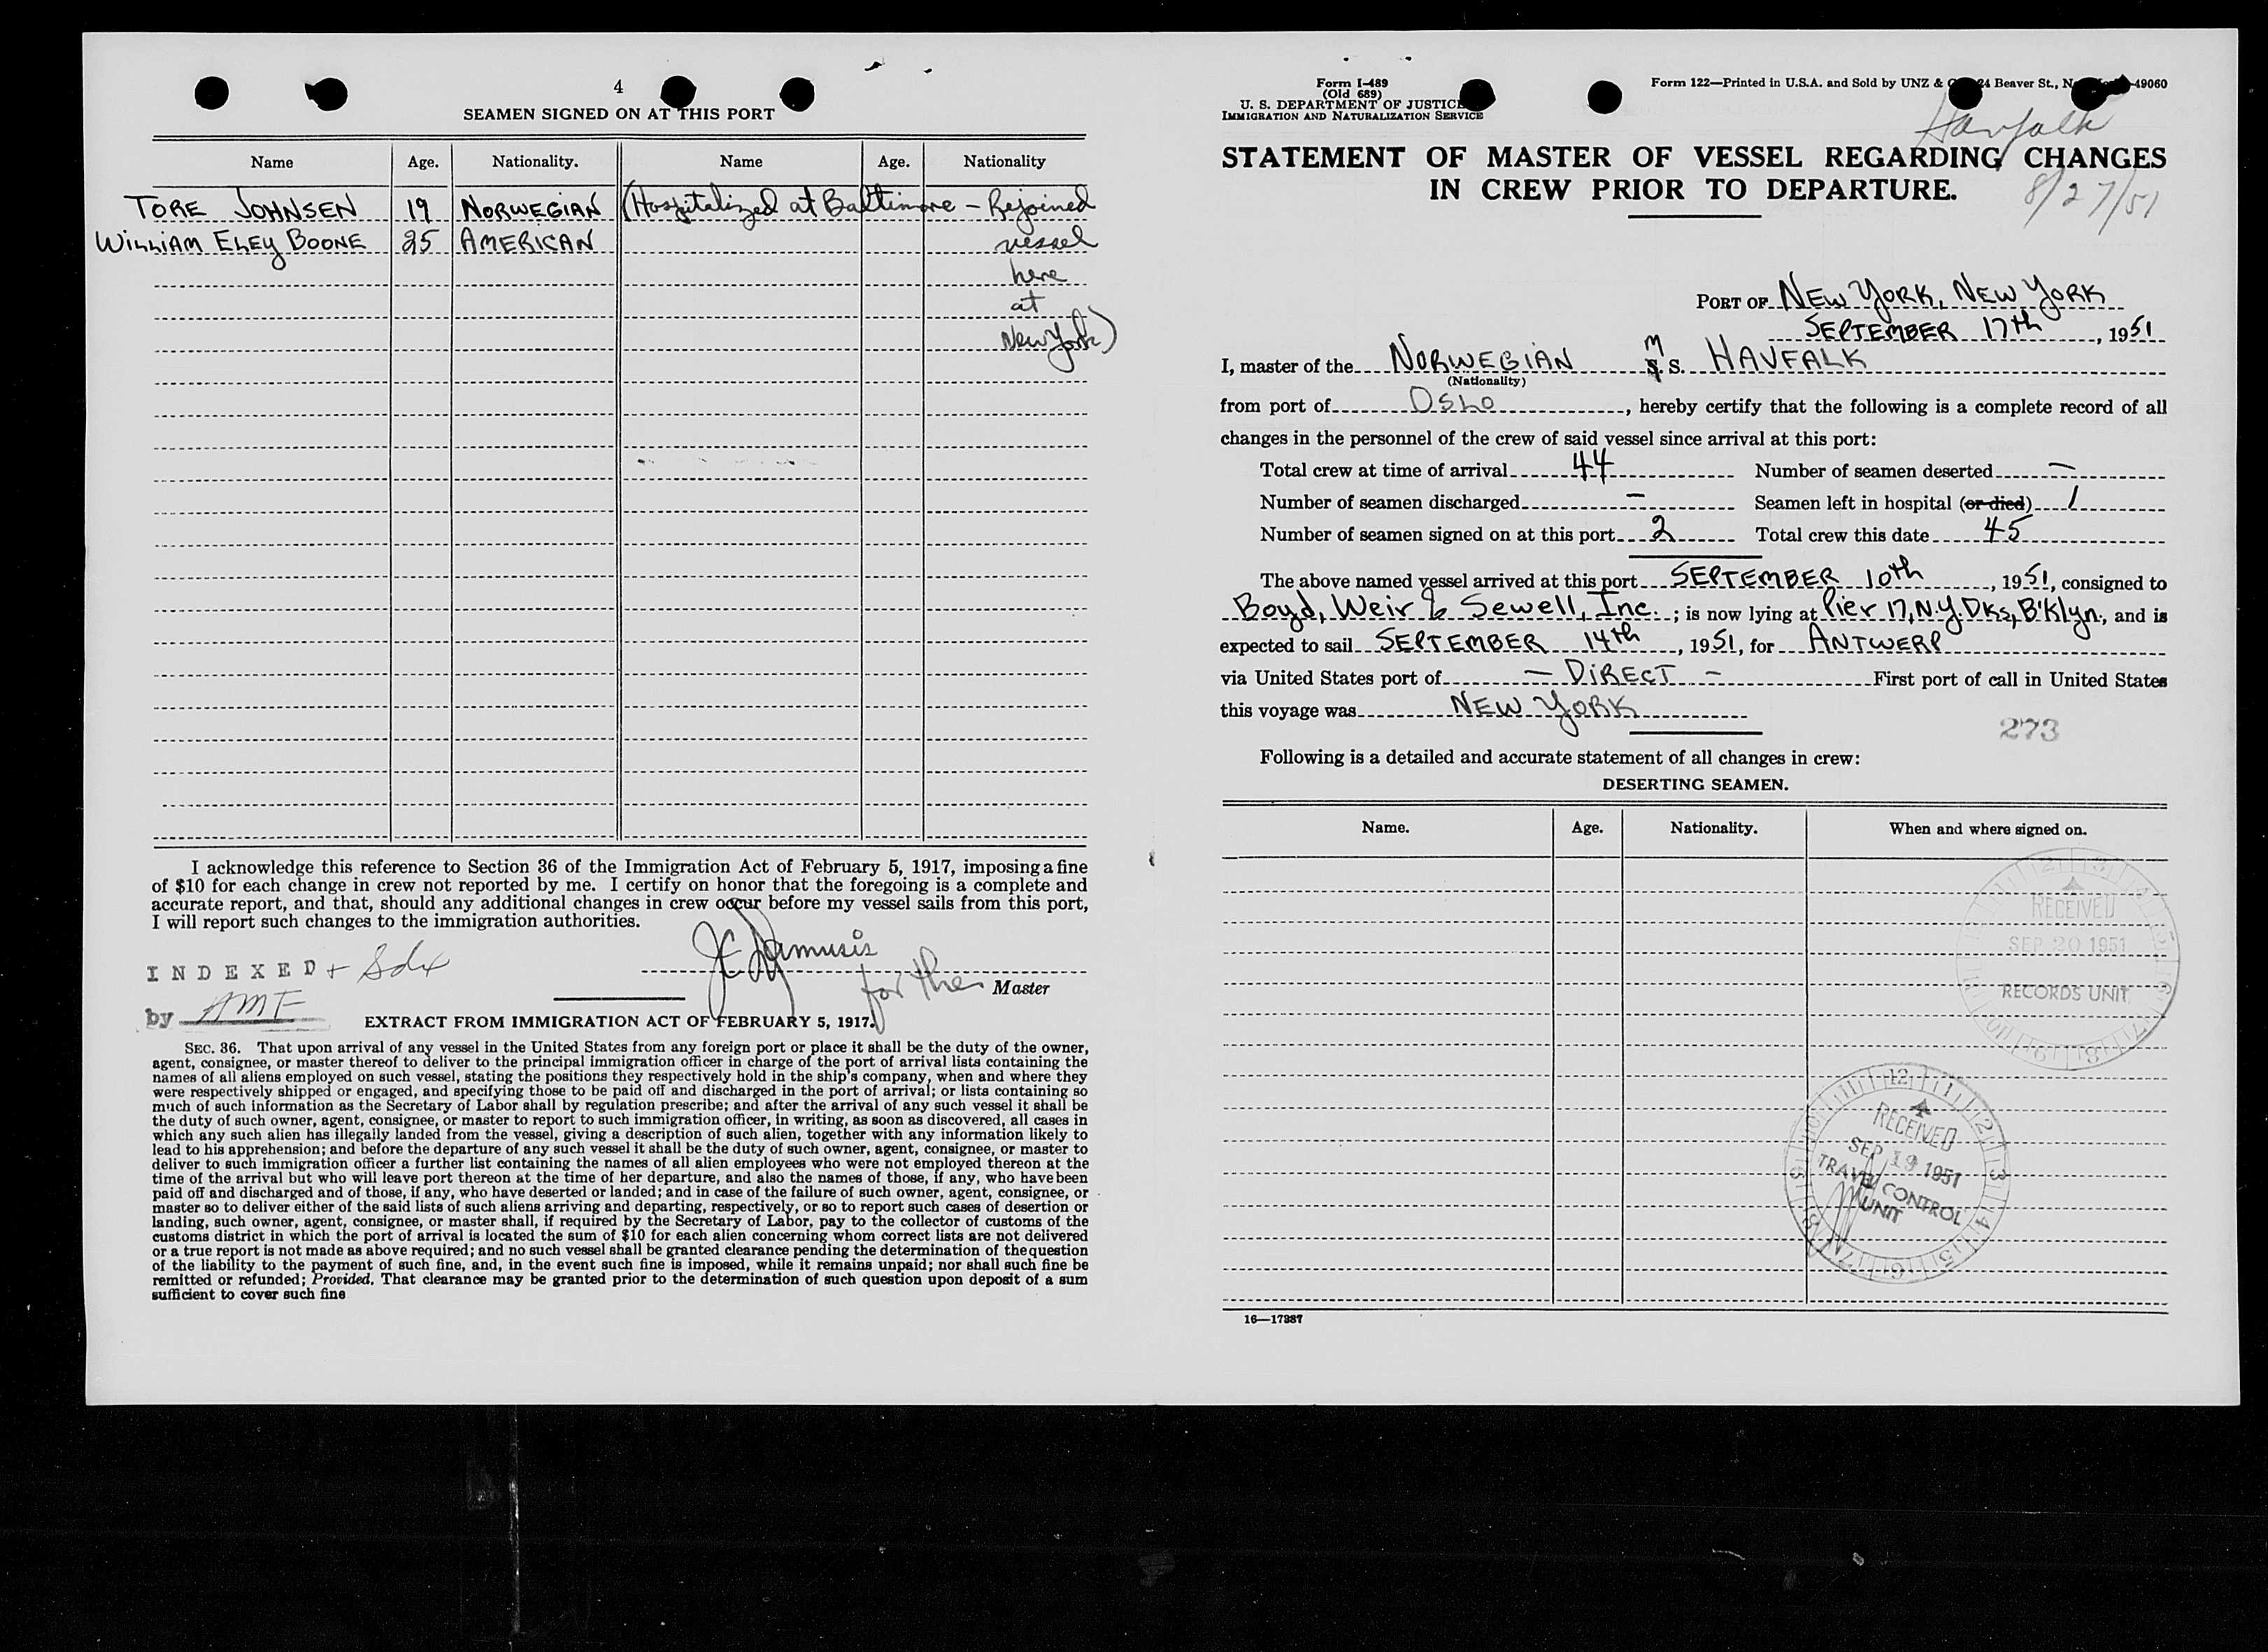 4
SEAMEN SIGNED ON AT THIS PORT
Name Age. Nationality. Name Age. Nationality
TORE JOHNSEN 19 NORWEGIAN (Hospitalized at Baltimore - Rejoined
WILLIAM ELEY BOONE 25 AMERICAN vessel
here
at
New York)
I acknowledge this reference to Section 36 of the Immigration Act of February 5, 1917, imposing a fine
of $10 for each change in crew not reported by me. I certify on honor that the foregoing is a complete and
accurate report, and that, should any additional changes in crew occur before my vessel sails from this port,
I will report such changes to the immigration authorities.
INDEXED + Sdx
for the Master
by AMF
EXTRACT FROM IMMIGRATION ACT OF FEBRUARY 5, 1917.
SEC. 36. That upon arrival of any vessel in the United States from any foreign port or place it shall be the duty of the owner,
agent, consignee, or master thereof to deliver to the principal immigration officer in charge of the port of arrival lists containing the
names of all aliens employed on such vessel, stating the positions they respectively hold in the ship's company, when and where they
were respectively shipped or engaged, and specifying those to be paid off and discharged in the port of arrival; or lists containing so
much of such information as the Secretary of Labor shall by regulation prescribe; and after the arrival of any such vessel it shall be
the duty of such owner, agent, consignee, or master to report to such immigration officer, in writing, as soon as discovered, all cases in
which any such alien has illegally landed from the vessel, giving a description of such alien, together with any information likely to
lead to his apprehension; and before the departure of any such vessel it shall be the duty of such owner, agent, consignee, or master to
deliver to such immigration officer a further list containing the names of all alien employees who were not employed thereon at the
time of the arrival but who will leave port thereon at the time of her departure, and also the names of those, if any, who have been
paid off and discharged and of those, if any, who have deserted or landed; and in case of the failure of such owner, agent, consignee, or
master so to deliver either of the said lists of such aliens arriving and departing, respectively, or so to report such cases of desertion or
landing, such owner, agent, consignee, or master shall, if required by the Secretary of Labor, pay to the collector of customs of the
customs district in which the port of arrival is located the sum of $10 for each alien concerning whom correct lists are not delivered
or a true report is not made as above required; and no such vessel shall be granted clearance pending the determination of the question
of the liability to the payment of such fine, and, in the event such fine is imposed, while it remains unpaid; nor shall such fine be
remitted or refunded; Provided, That clearance may be granted prior to the determination of such question upon deposit of a sum
sufficient to cover such fine
Form I-489
(Old 689)
U. S. DEPARTMENT OF JUSTICE
IMMIGRATION AND NATURALIZATION SERVICE
Form 122—Printed in U.S.A. and Sold by UNZ & 24 Beaver St., 49060
Havfalk
STATEMENT OF MASTER OF VESSEL REGARDING CHANGES
IN CREW PRIOR TO DEPARTURE.
8/27/51
PORT OF NEW YORK, NEW YORK
SEPTEMBER 17th, 1951
I, master of the NORWEGIAN M S. HAVFALK
(Nationality)
from port of OSLO, hereby certify that the following is a complete record of all
changes in the personnel of the crew of said vessel since arrival at this port:
Total crew at time of arrival 44 Number of seamen deserted —
Number of seamen discharged — Seamen left in hospital (or died) 1
Number of seamen signed on at this port 2 Total crew this date 45
The above named vessel arrived at this port SEPTEMBER 10th, 1951, consigned to
Boyd, Weir & Sewell, Inc.; is now lying at Pier 17, N.Y. Dks, B'Klyn., and is
expected to sail SEPTEMBER 14th, 1951, for ANTWERP
via United States port of — DIRECT — First port of call in United States
this voyage was NEW YORK
273
Following is a detailed and accurate statement of all changes in crew:
DESERTING SEAMEN.
Name. Age. Nationality. When and where signed on.
RECEIVED
SEP 20 1951
RECORDS UNIT
RECEIVED
SEP 19 1951
TRAVEL CONTROL
UNIT
16—17387